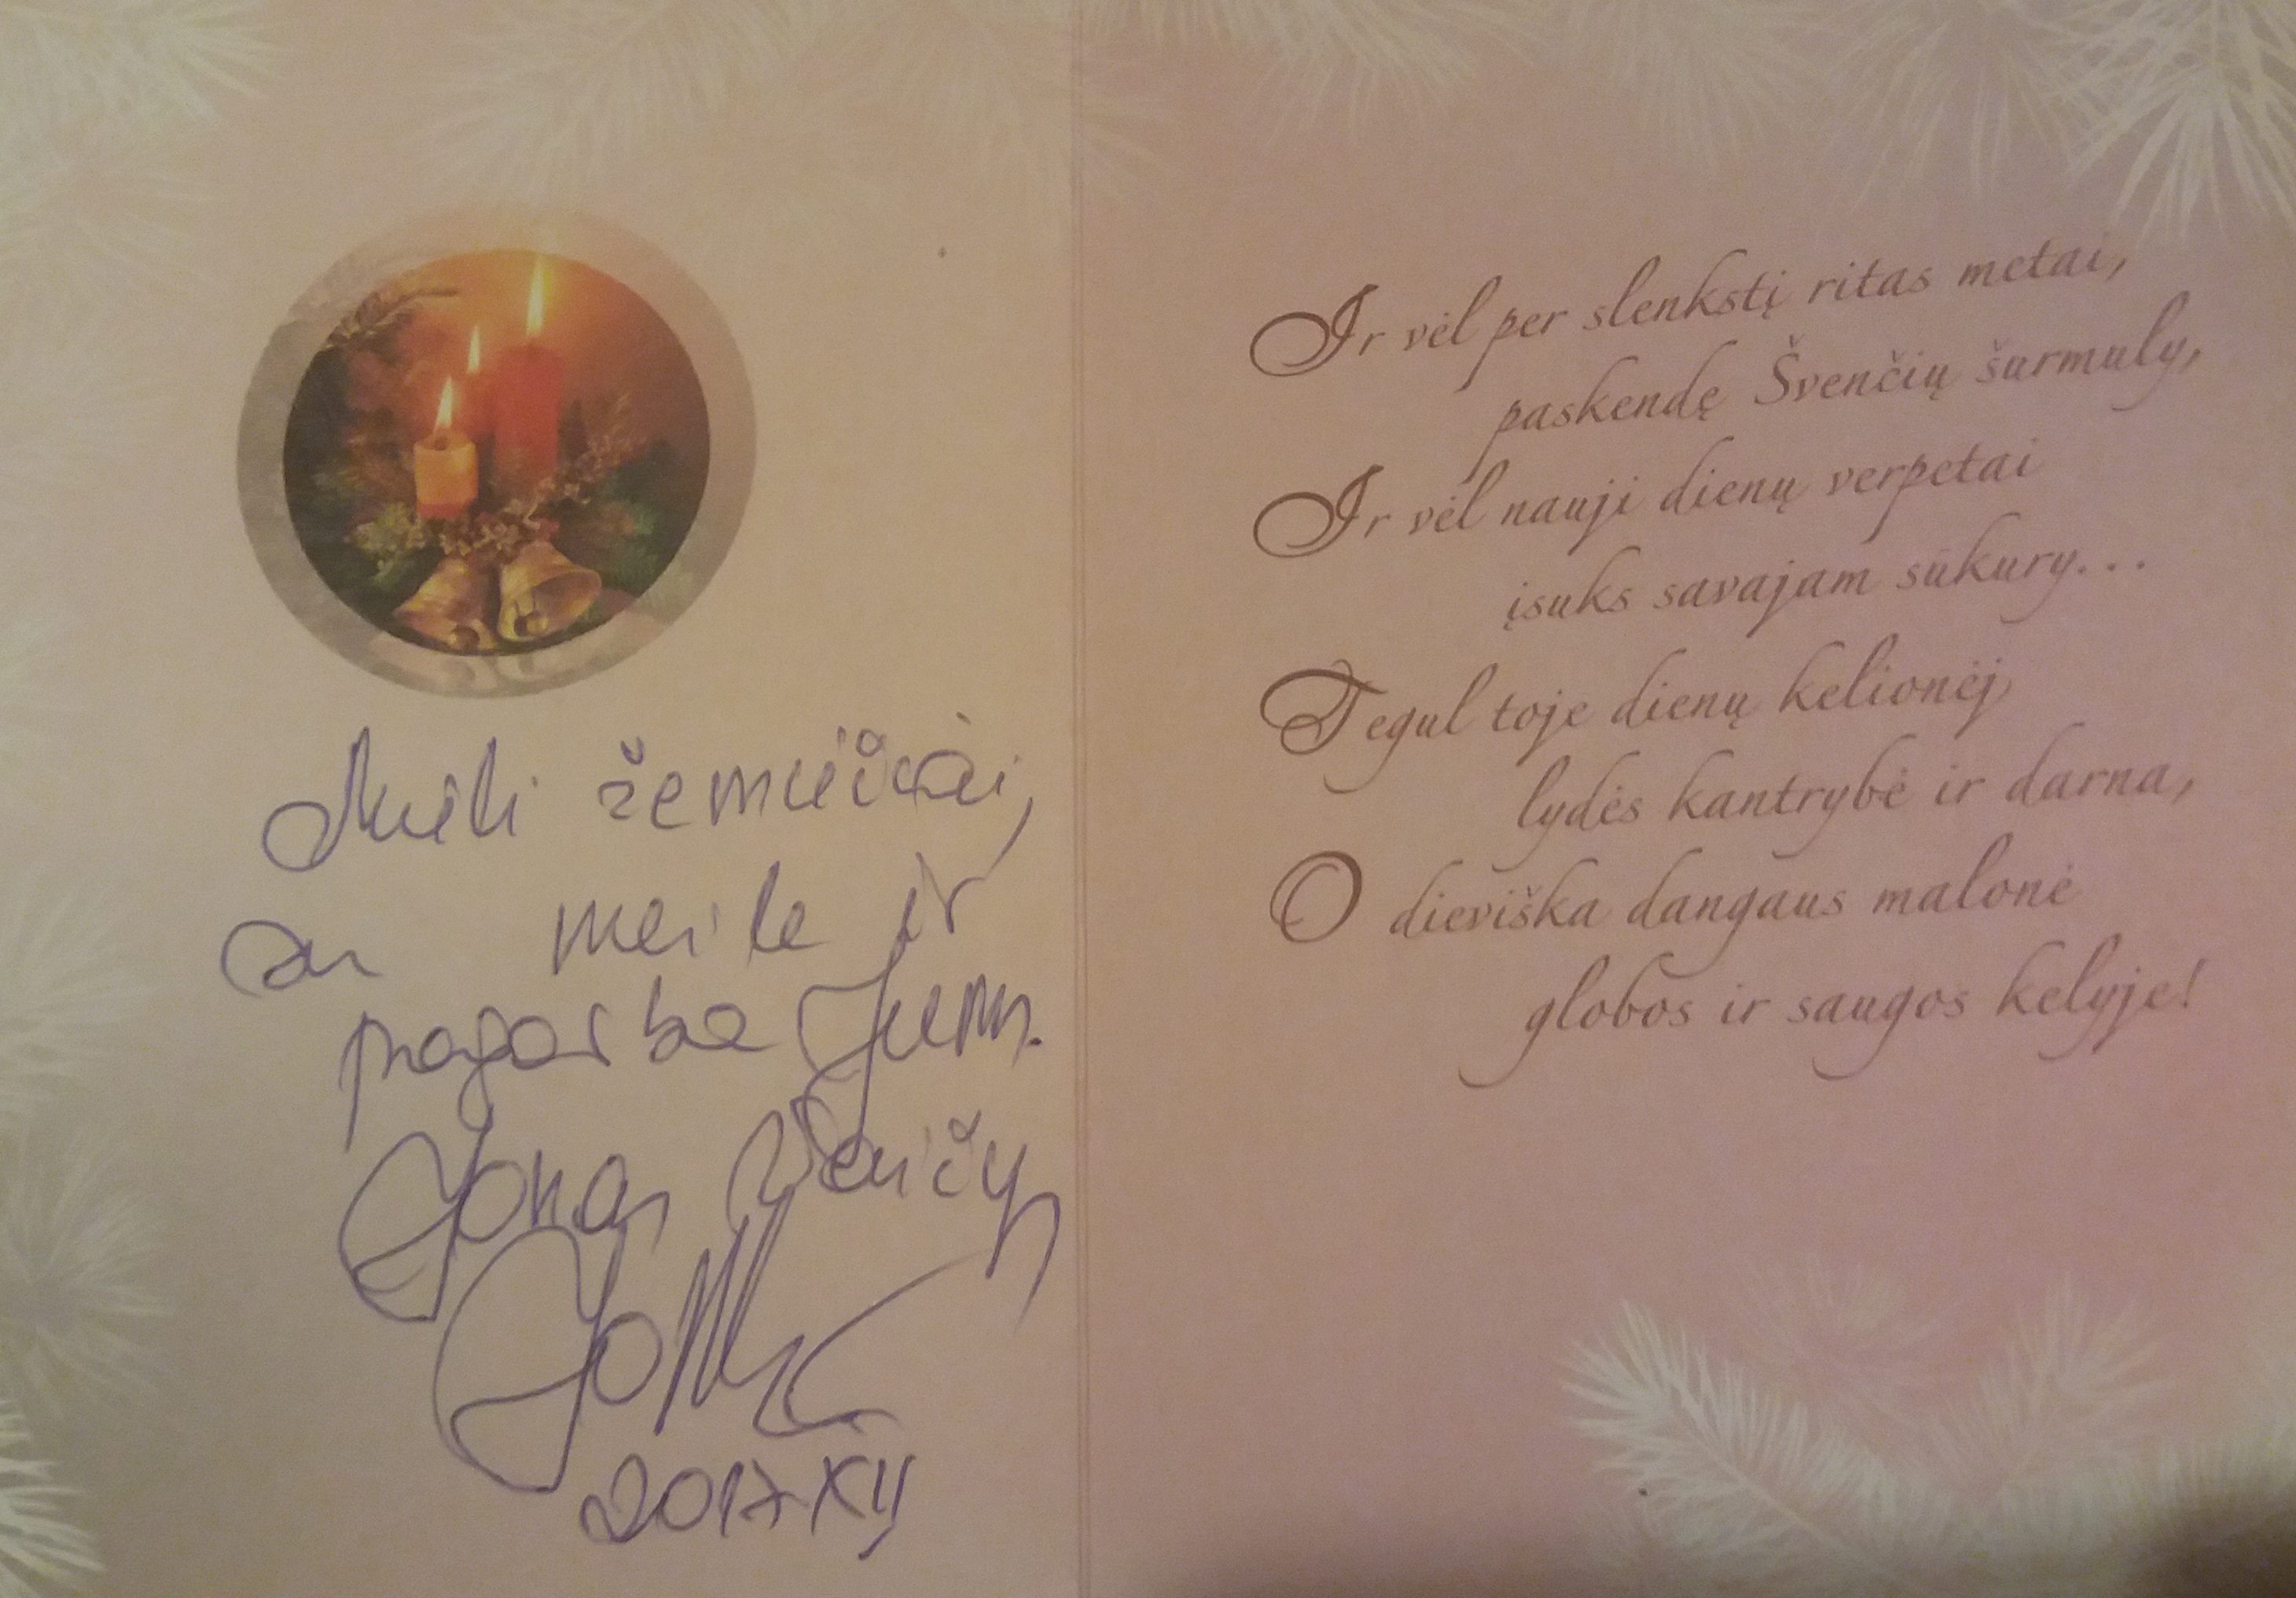 Mieli žemiečiai,
su meile ir
pagarba Jums.
Jonas
2017 XII
Ir vėl per slenkstį ritas metai,
paskendę Švenčių šurmuly,
Ir vėl nauji dienų verpetai
įsuks savajam sūkury...
Tegul toje dienų kelionėj
lydės kantrybė ir darna,
O dieviška dangaus malonė
globos ir saugos kelyje!